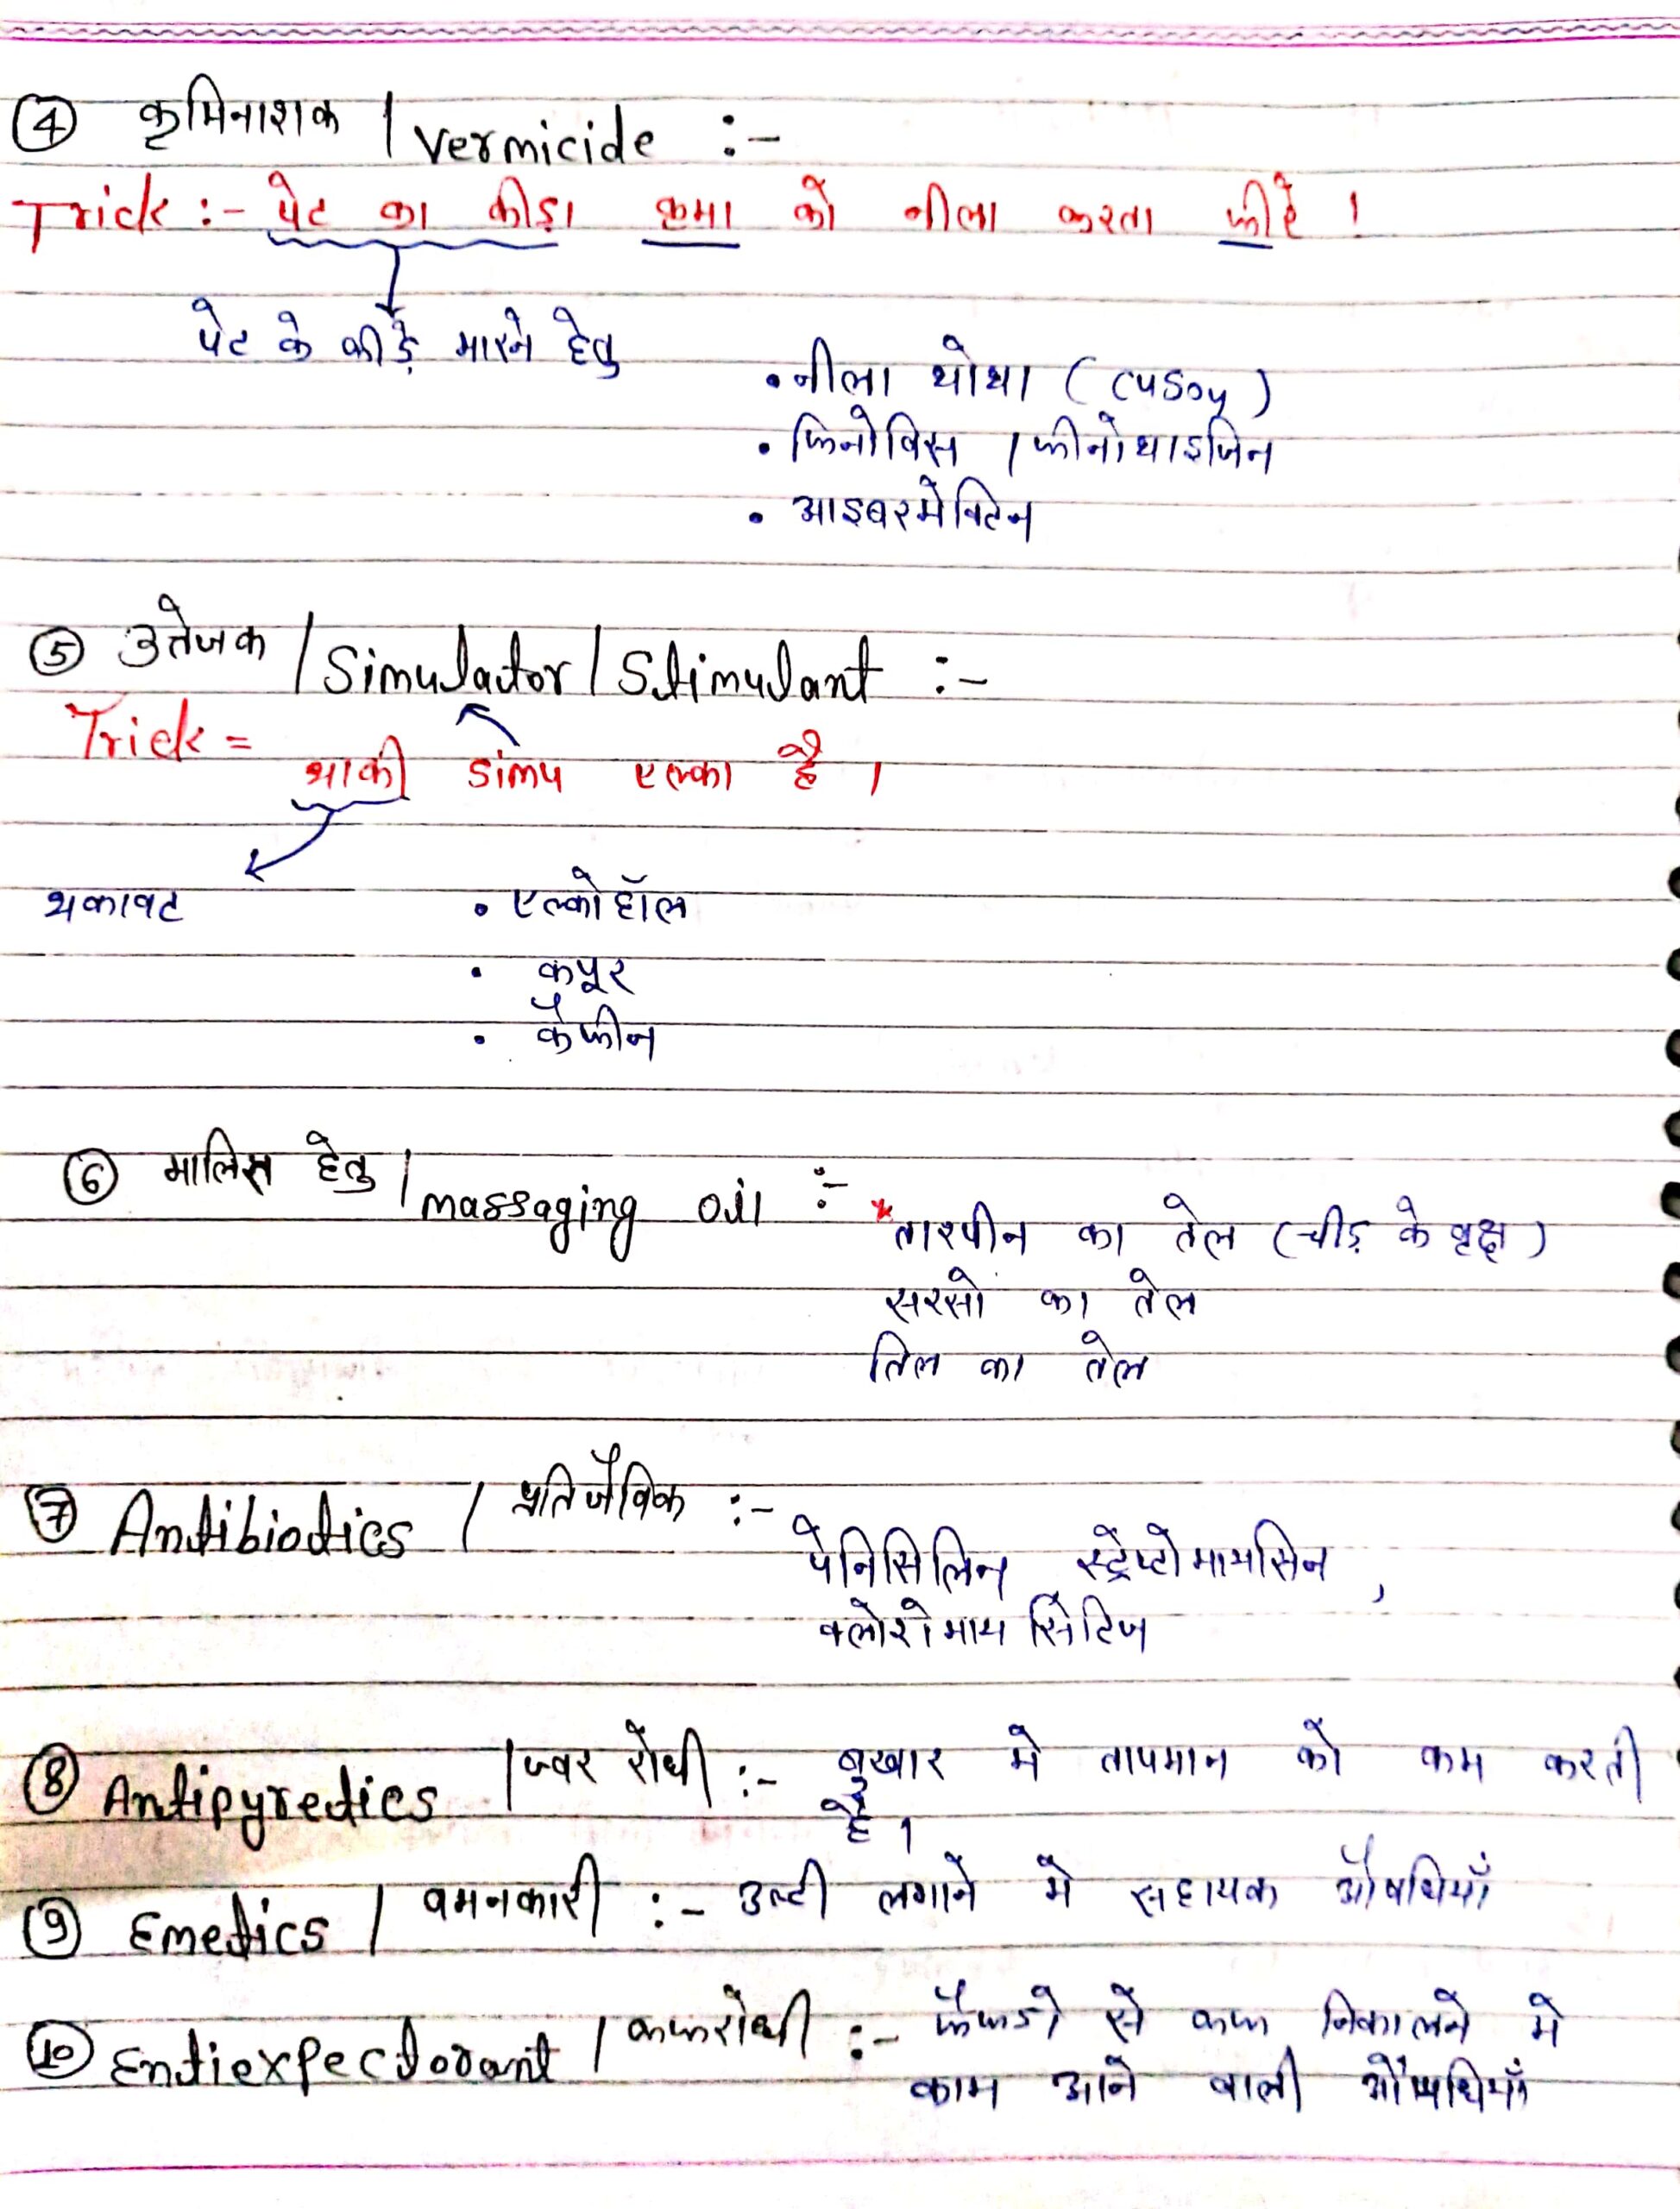 ④ कृमिनाशक / Vermicide :-
Trick :- पेट का कीड़ा कृमा को नीला करता फीहै ।
पेट के कीड़े मारने हेतु
• नीला थोथा ( CuSO4 )
• फिनोविस / फीनोथाइजिन
• आइबरमेक्टिन
⑤ उतेजक / Simulator / Stimulant :-
Trick = थाकी Simu एल्का है ।
थकावट • एल्कोहॉल
• कपूर
• कैफीन
⑥ मालिस हेतु / massaging oil :-
* तारपीन का तेल ( चीड़ के वृक्ष )
सरसो का तेल
तिल का तेल
⑦ Antibiotics / प्रतिजैविक :-
पेनिसिलिन स्ट्रेप्टोमायसिन ,
क्लोरोमायसिटिज
⑧ Antipyretics / ज्वर रोधी :- बुखार मे तापमान को कम करती
है ।
⑨ Emetics / वमनकारी :- उल्टी लगाने मे सहायक औषधियाँ
⑩ Entiexpectorant / कफरोधी :- फैफडो से कफ निकालने मे
काम आने वाली औषधियाँ